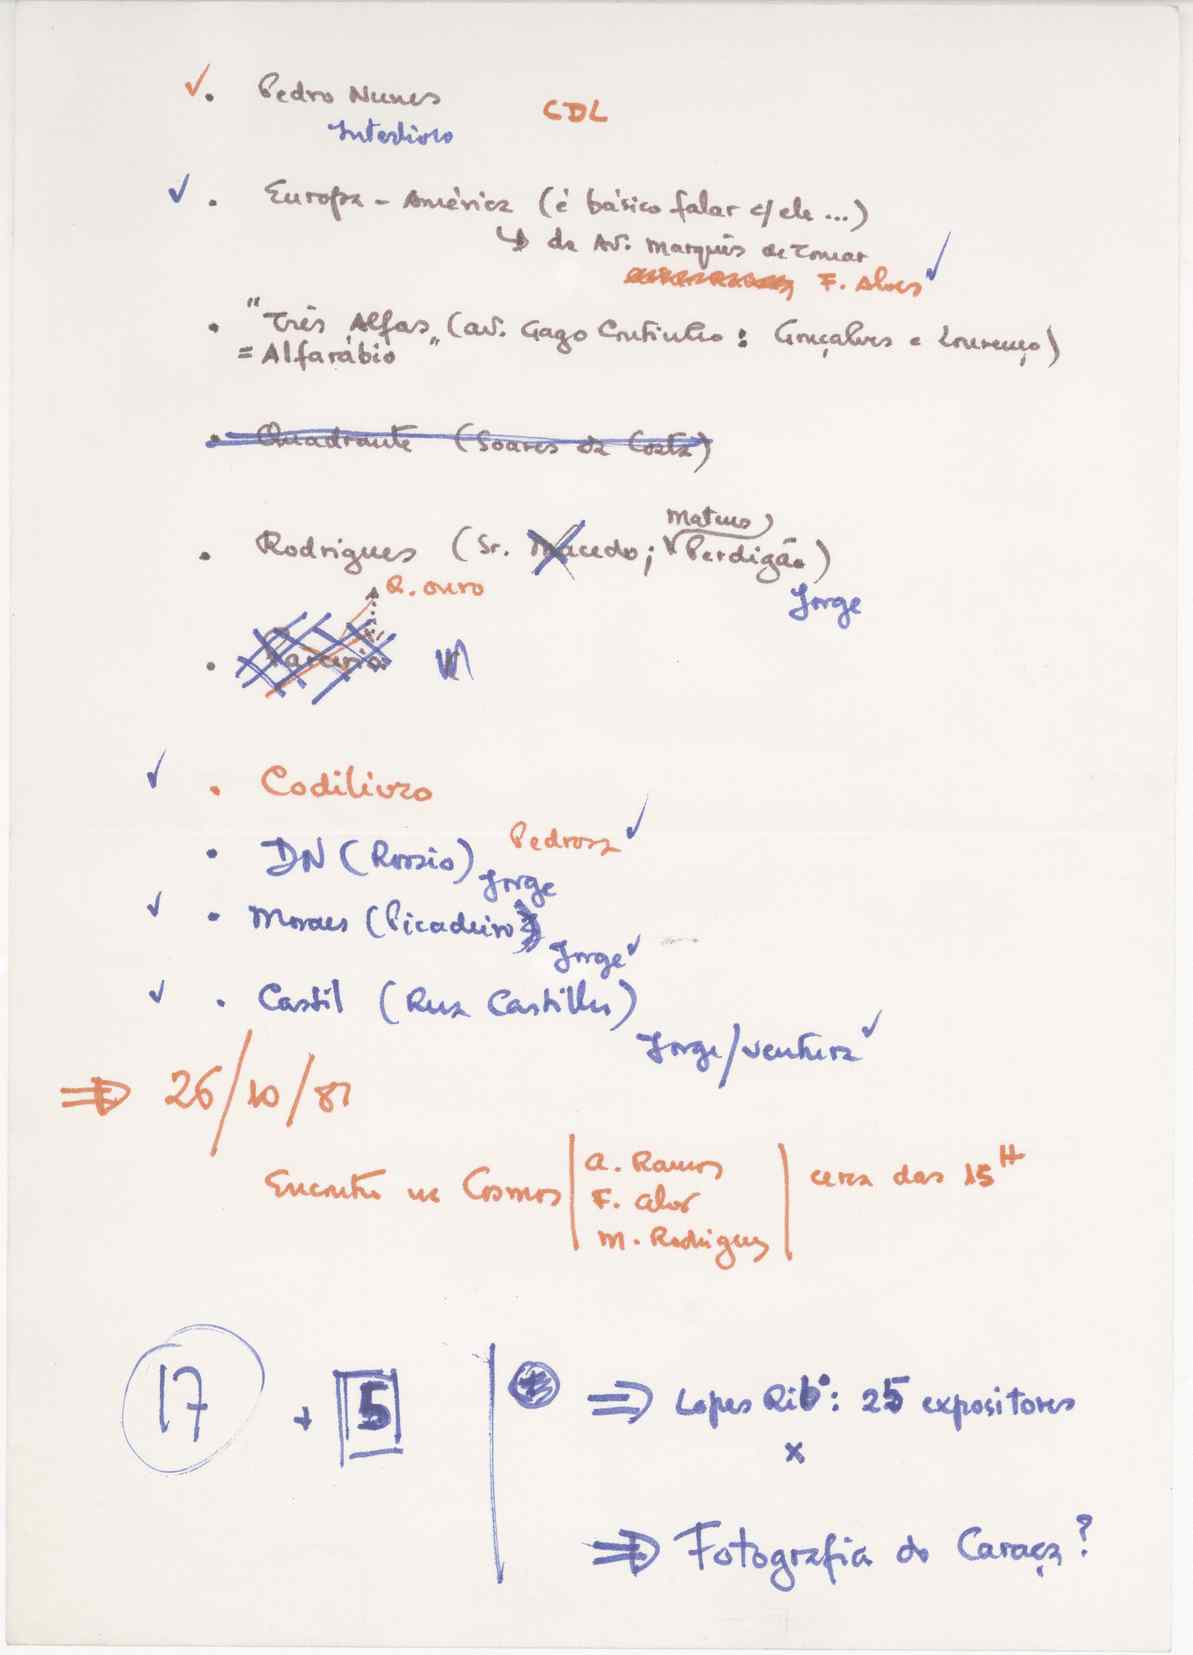 ✓ . Pedro Nunes CDL
Interlivro
✓ . Europa - América (é básico falar c/ ele ...)
↳ da Av. Marquês de Tomar
F. Alves ✓
. "Três Alfas" (av. Gago Coutinho : Gonçalves e Lourenço)
= Alfarábio
. Quadrante (Soares da Costa)
Mateus)
. Rodrigues (Sr. Macedo; Perdigão)
R. ouro
Jorge
✓ . Codilivro
Pedrosa ✓
. DN (Rossio)
Jorge
✓ . Moraes (Picadeiro)
Jorge ✓
✓ . Castil (Rua Castilho)
Jorge/Ventura ✓
⇒ 26/10/81
Encontro na Cosmos | A. Ramos | cerca das 15H
F. Alves
M. Rodrigues
17 + 5 | ⇒ Lopes Ribº: 25 expositores
x
⇒ Fotografia do Caraça?